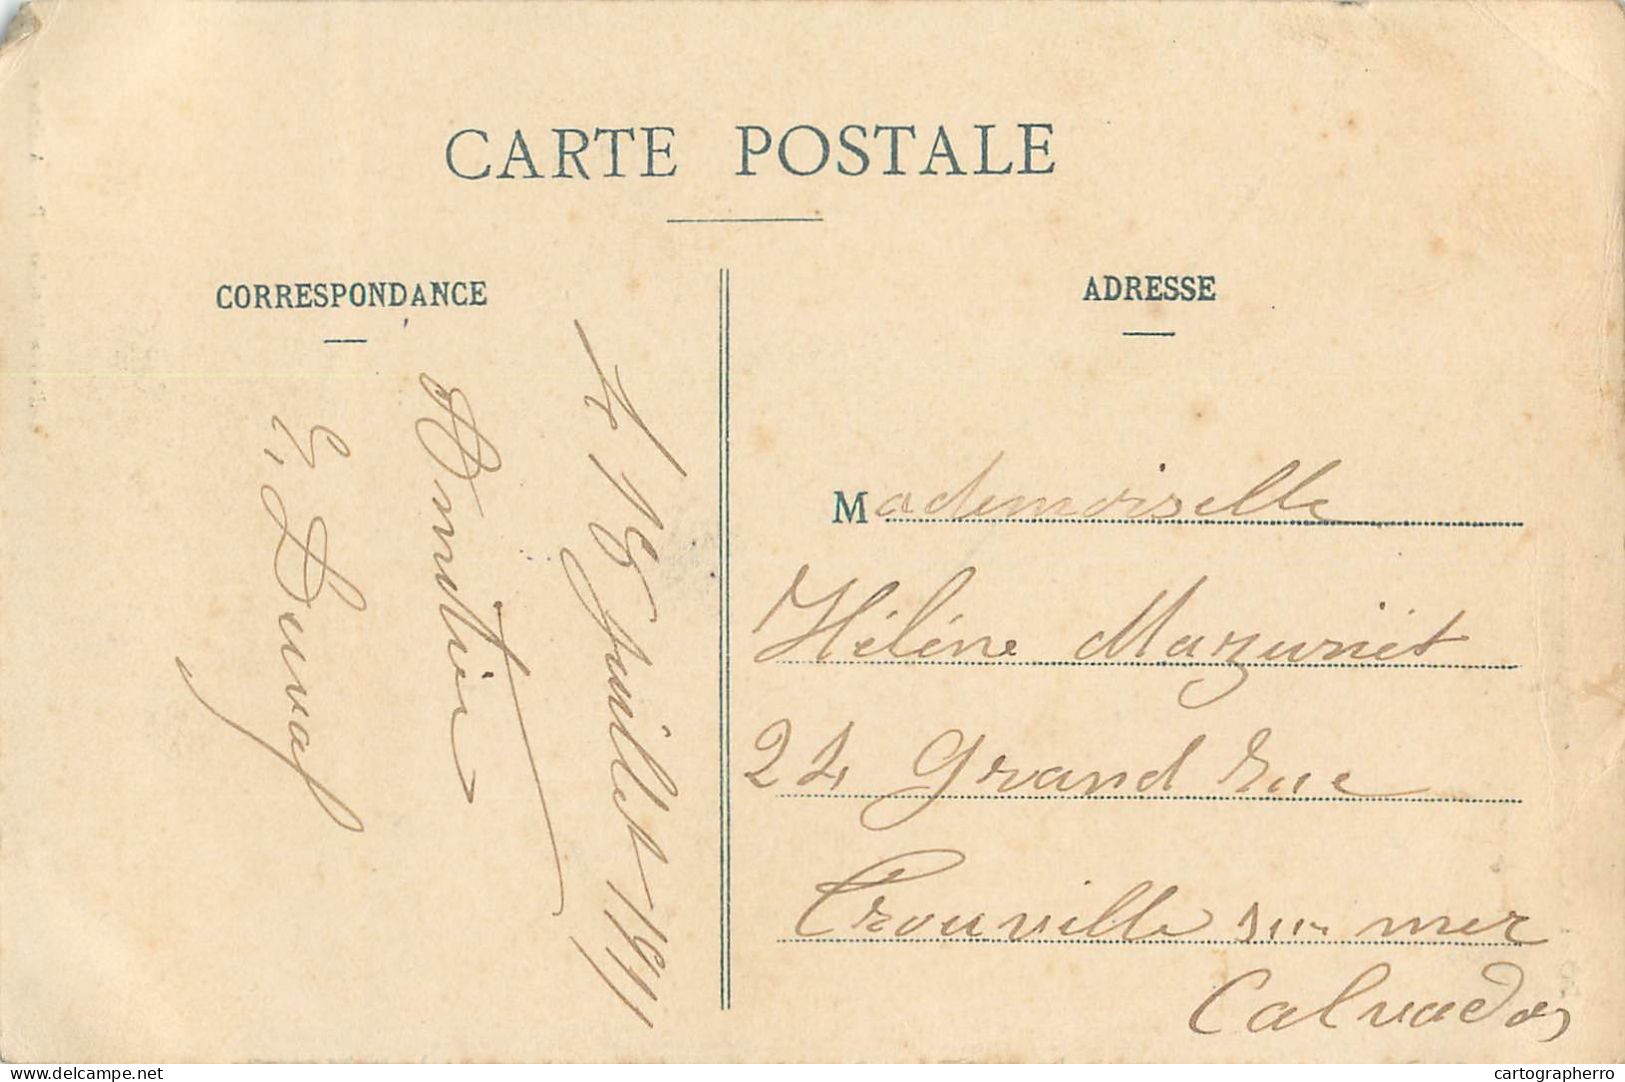 CARTE POSTALE
CORRESPONDANCE
ADRESSE
Le 18 Juillet 1911
Amitié
E. Duval
Mademoiselle
Hélène Mazuriët
24 Grand Rue
Trouville sur mer
Calvados
delcampe.net
cartographerro